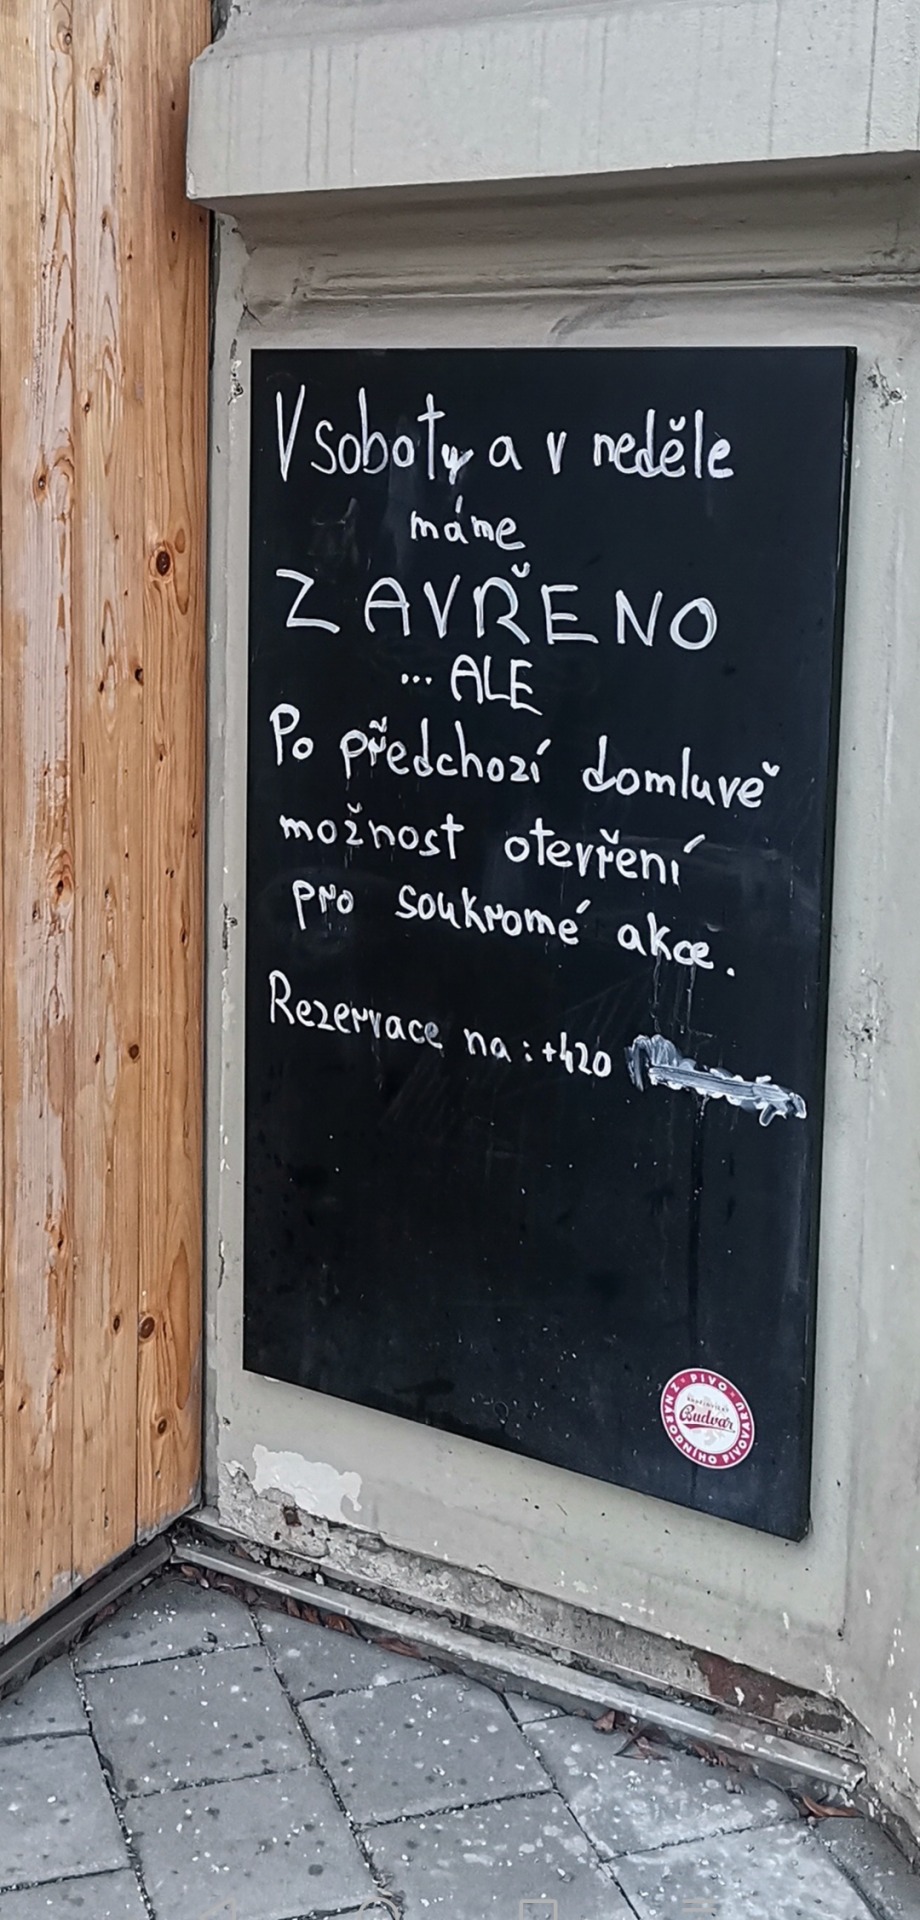 V soboty a v neděle
máme
ZAVŘENO
... ALE
Po předchozí domluvě
možnost otevření
pro soukromé akce.
Rezervace na: +420
PIVO
Budvar
Z NÁRODNÍHO PIVOVARU